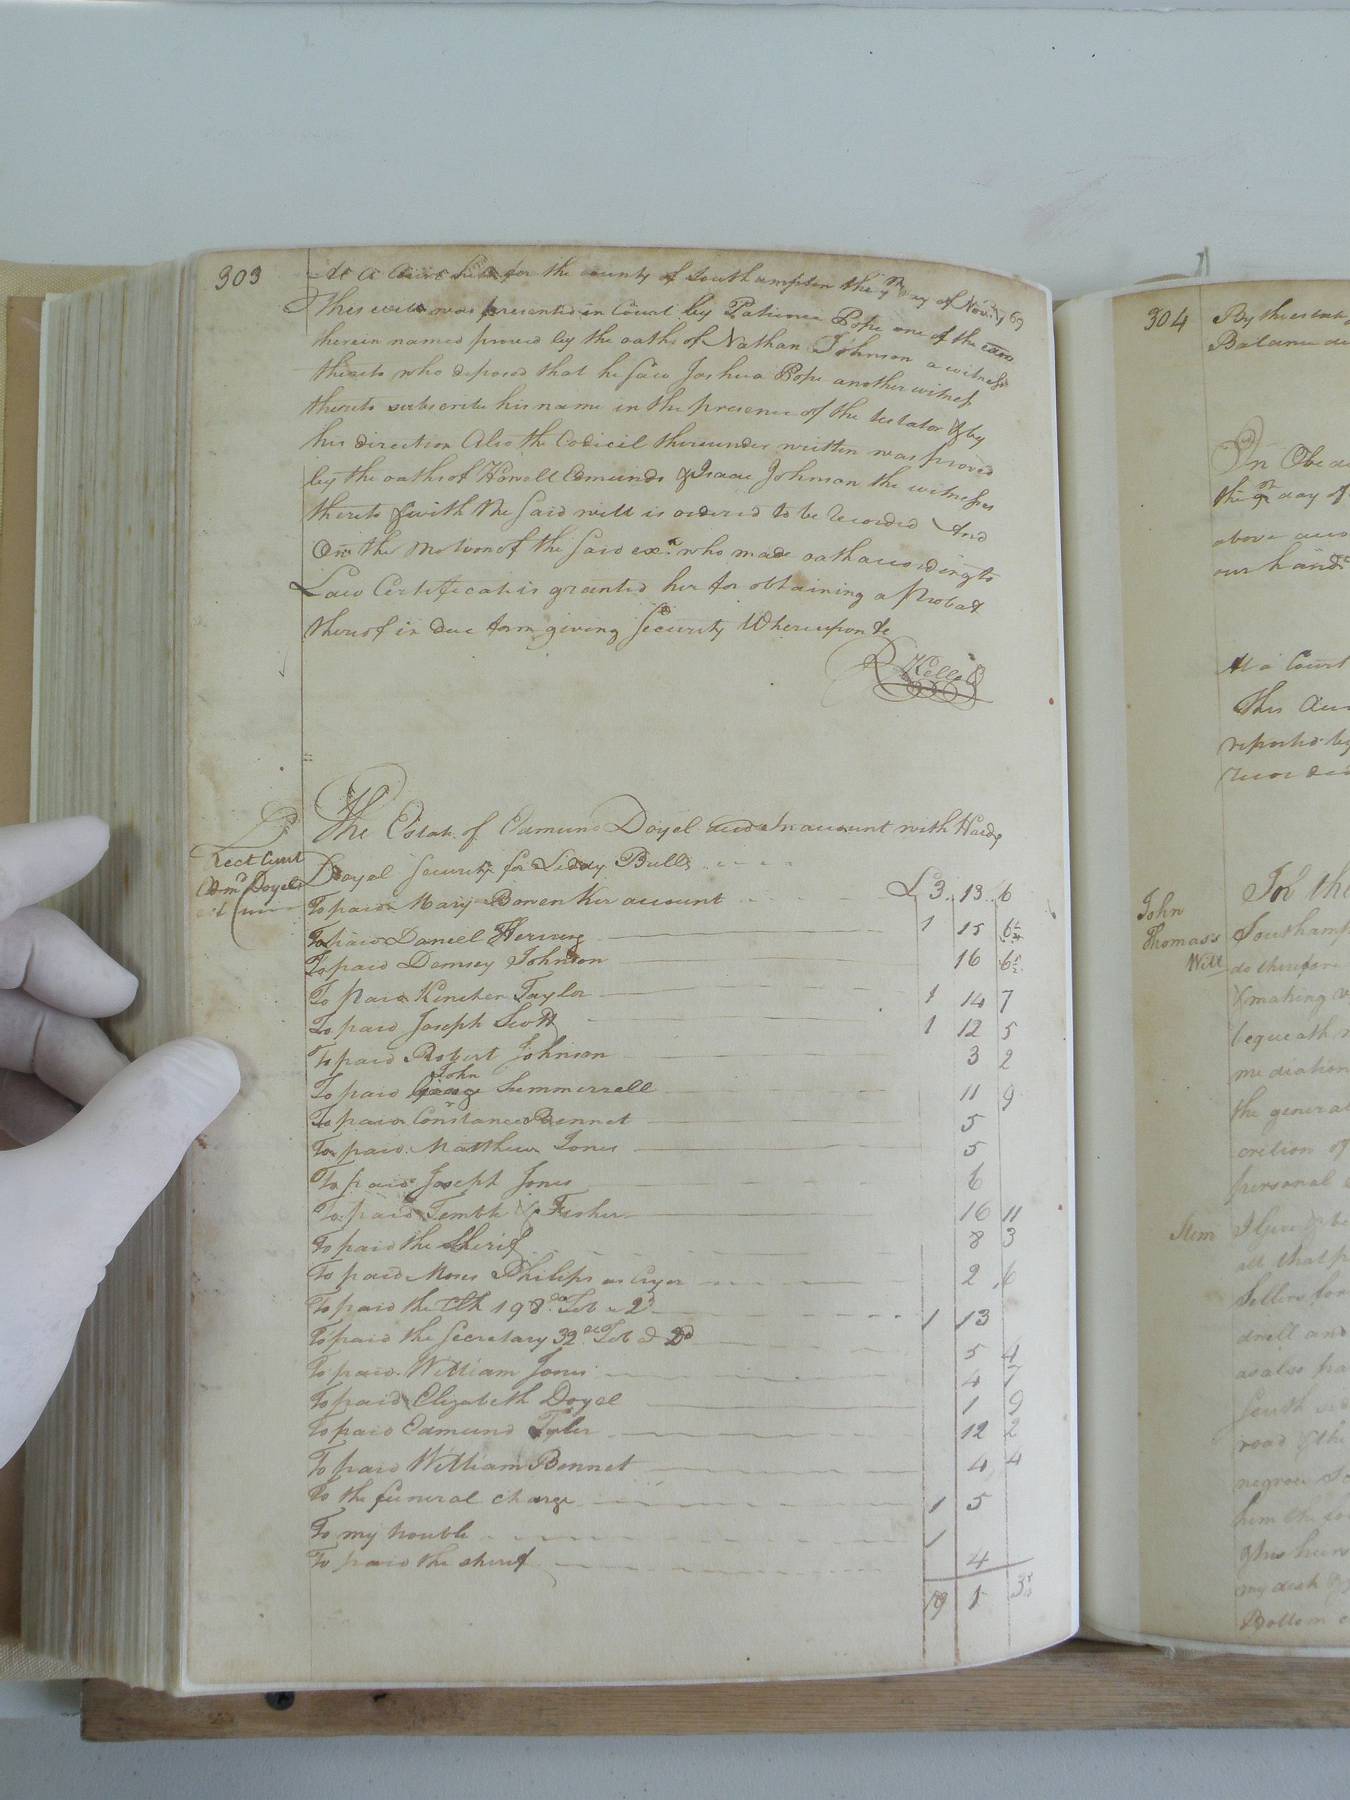 303
At a Court held for the county of Southampton the 9th day of Novr. 1769
This will was presented in Court by Patience Pope one of the exors
therein named proved by the oaths of Nathan Johnson a witness
thereto who deposed that he saw Joshua Pope another witness
thereto subscribe his name in the presence of the testator & by
his direction Also the Codicil thereunder written was proved
by the oaths of Howell Edmunds & Isaac Johnson the witnesses
thereto & with the said will is ordered to be recorded And
On the Motion of the said exx. who made oath according to
Law Certificate is granted her for obtaining a Probat
thereof in due form giving Security Whereupon &c
R Kello
The Estate of Edmund Doyel in account with Hardy
Doyel Security for Bull
Edmd Doyels
To paid Mary Bowen Ker account £ 3 .. 13 .. 6
To paid Daniel Herring 1 15 6½
To paid Demsey Johnson 16 6½
To paid Kinchen Taylor 1 14 7
To paid Joseph Scott 1 12 5
To paid Robert Johnson 3 2
To paid John Summerrell 11 9
To paid Constance Bennet 5
To paid Matthew Jones 5
To paid Joseph Jones 6
To paid Temble & Fisher 16 11
To paid the Sherif 8 3
To paid Moses Philips as Cryer 2 6
To paid the Clk 198 Tob a 2d 1 13
To paid the Secretary 32 Tob a 2d 5 4
To paid William Jones 4 7
To paid Elizabeth Doyel 1 9
To paid Edmund Tyler 12 2
To paid William Bennet 4 4
To the funeral charge 1 5
To my trouble 1
To paid the sherif 4
19 1 3½
304
By the
Balance
In Obe
the 9th day of
above acco
our hands
At a Court
This Acc
reported by
recorded
John
Thomas's
Will
In the
Southamp
do therefore
& making
bequeath
mediation
the general
cretion of
personal
Item
I Give
all that p
Sellers for
drell and
as also pa
South sid
road & the
negroes
him the
my desk
Bottom